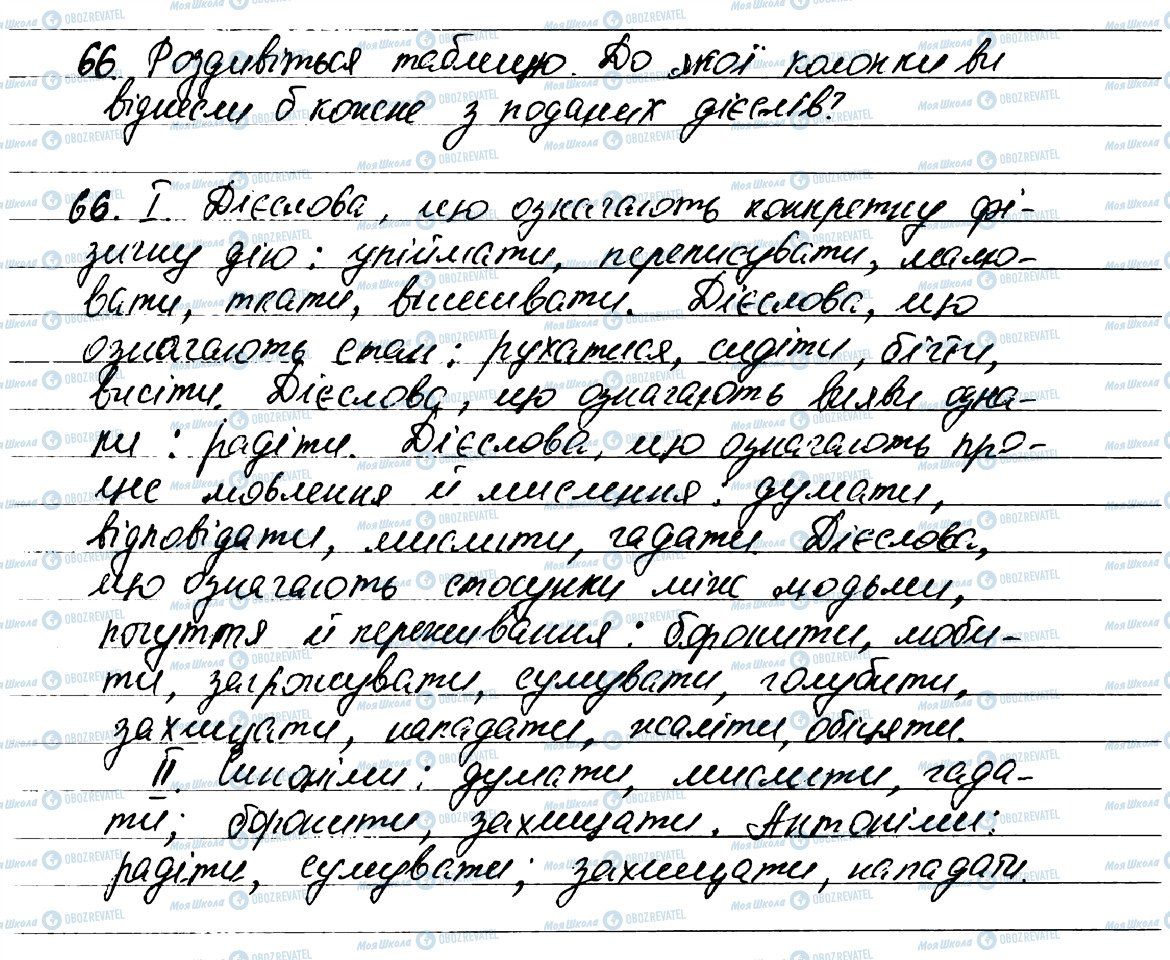 66. Роздивіться таблицю. До якої колонки ви
віднесли б кожне з поданих дієслів?
66. I. Дієслова, що означають конкретну фі-
зичну дію: упіймати, переписувати, малю-
вати, ткати, вишивати. Дієслова, що
означають стан: рухатися, сидіти, бігти,
висіти. Дієслова, що означають вияви озна-
ки: радіти. Дієслова, що означають про-
цес мовлення й мислення: думати,
відповідати, мислити, гадати. Дієслова,
що означають стосунки між людьми,
почуття й переживання: боронити, люби-
ти, загрожувати, сумувати, голубити,
захищати, нападати, жаліти, обіцяти.
II. Синоніми: думати, мислити, гада-
ти; боронити, захищати. Антоніми:
радіти, сумувати; захищати, нападати.